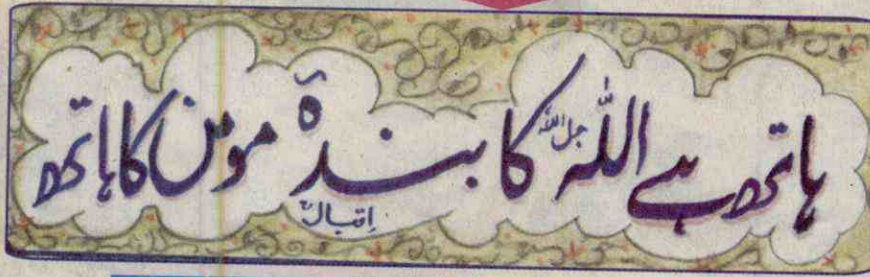 ہاتھ ہے اللہ جل اللہ کا بندۂ مومن کا ہاتھ
اقبالؒ